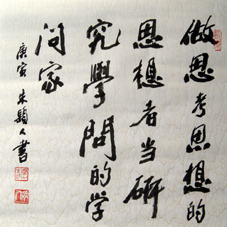 做思考思想的
思想者当研
究學問的学
问家
庚寅 朱穎人書